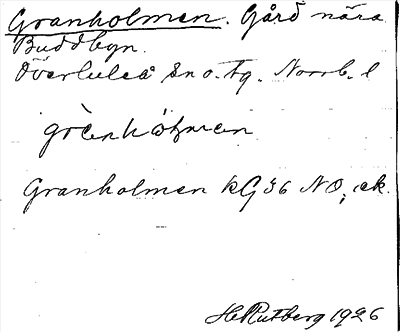 Granholmen. Gård nära
Buddbyn.
Överluleå sn o. tg. Norrb. l
Granholmen kG 36 NO, ek.
H Rutberg 1926